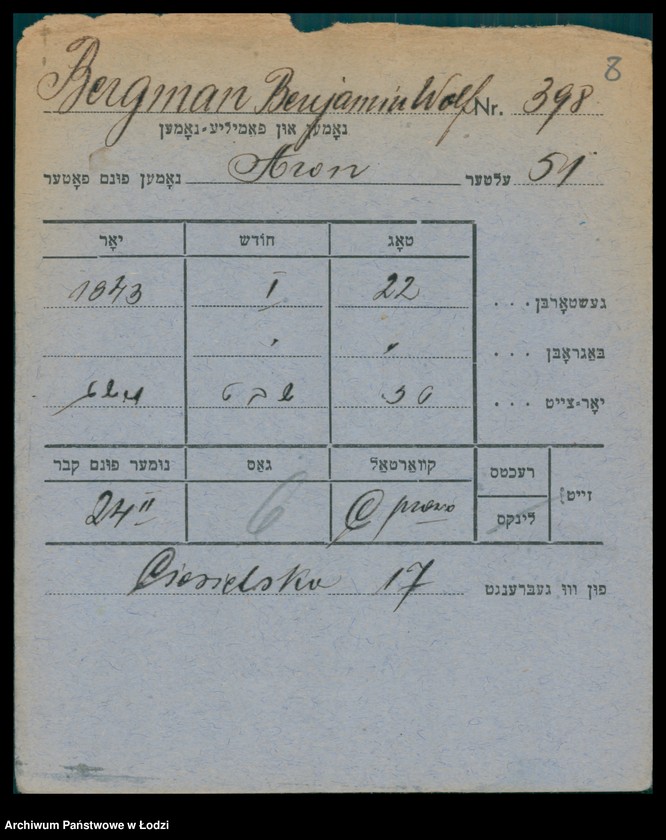 8
Bergman Benjamin Wolf Nr. 398
נאָמען און פאַמיליע-נאָמען
נאָמען פונם פאָטער Aron עלטער 51
טאָג חודש יאָר
געשטאָרבן . . . 22 I 1943
באַגראָבן . . . " "
יאָר-צייט . . . שבט
זייט רעכטס קוואַרטאַל גאַס נומער פונם קבר
לינקס C prawo 6 24 II
פון וווּ געברענגט Ciesielska 17
Archiwum Państwowe w Łodzi